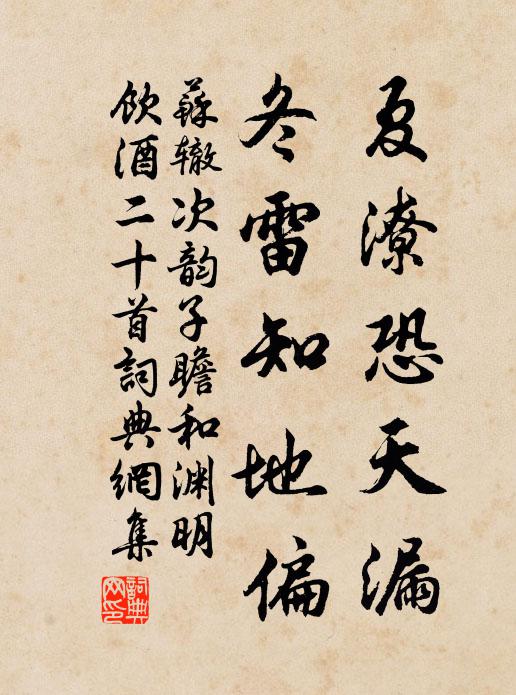 夏潦恐天漏
冬雷知地偏
蘇辙次韵子瞻和渊明
飲酒二十首詞典網集
詞典網印